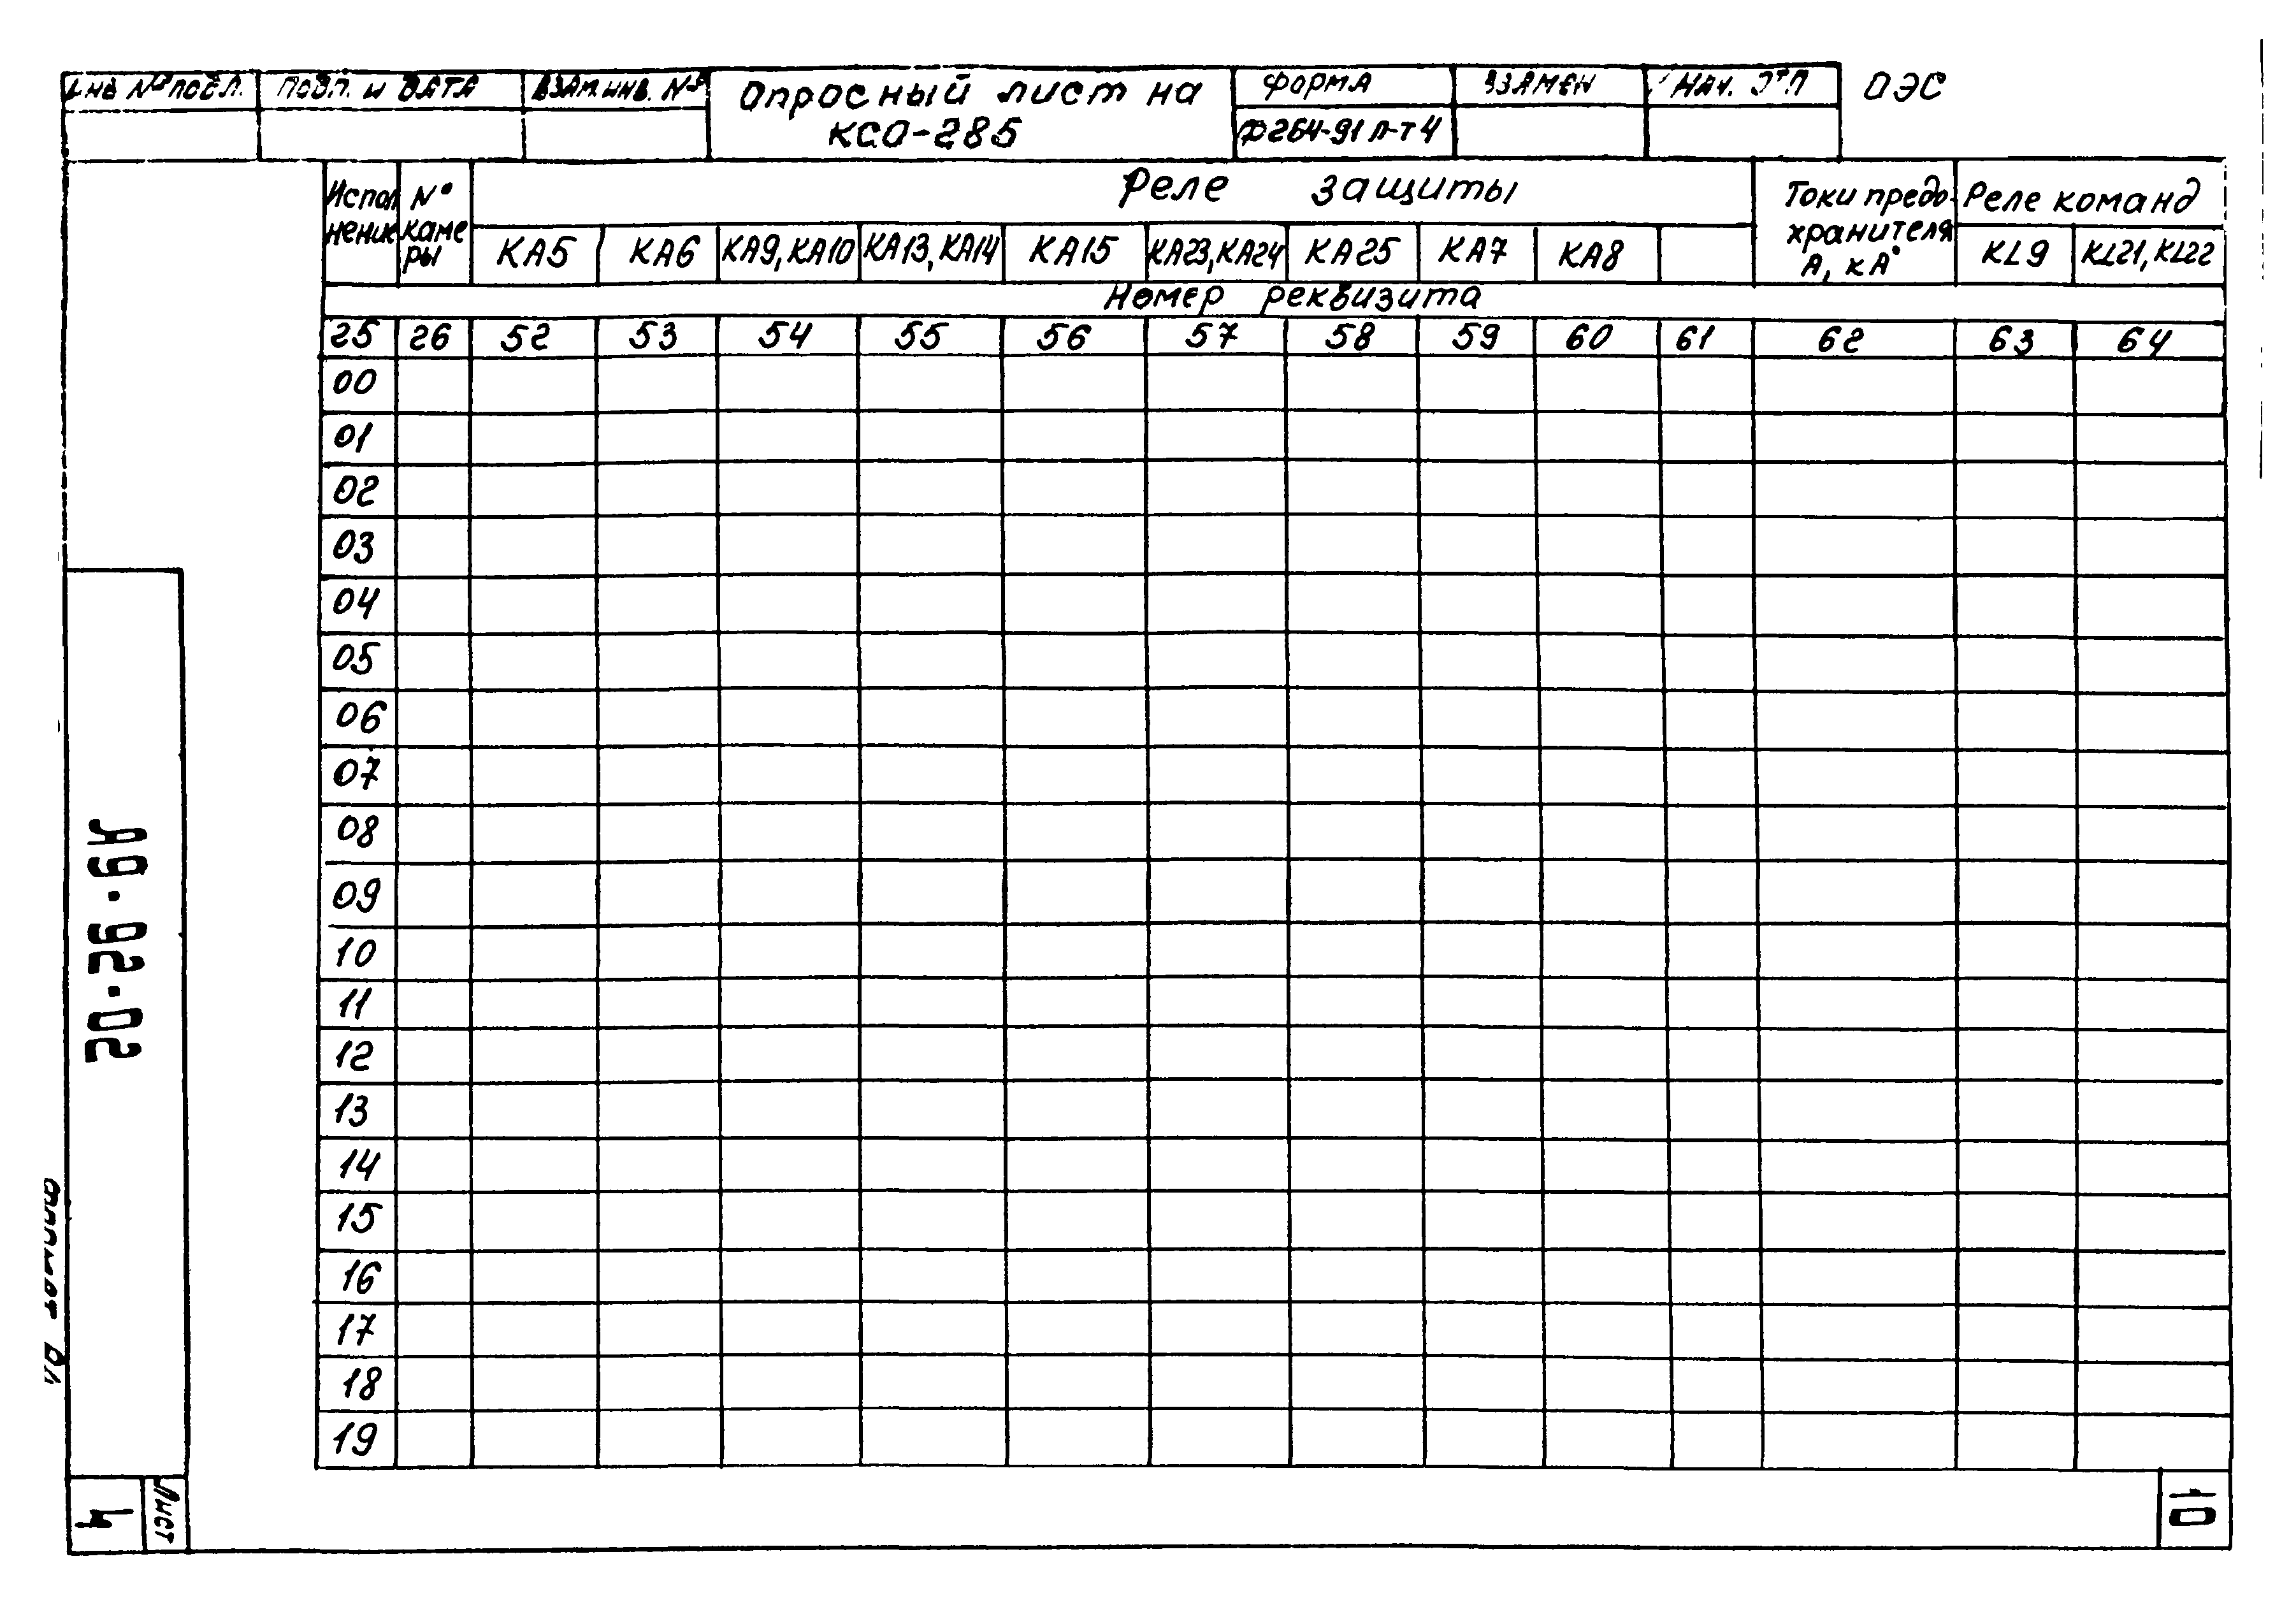 Инв № подл. Подп. и дата Взам. инв. № Опросный лист на КСО-285 Форма Взамен Нач. ОЭС
Ф264-91 Л-Т4
Исполнение № камеры Реле защиты Токи предохранителя А, кА Реле команд
КА5 КА6 КА9, КА10 КА13, КА14 КА15 КА23, КА24 КА25 КА7 КА8 KL9 KL21, KL22
Номер реквизита
25 26 52 53 54 55 56 57 58 59 60 61 62 63 64
00
01
02
03
04
05
06
07
08
09
10
11
12
13
14
15
16
17
18
19
А9-92-02
Лист
4
10